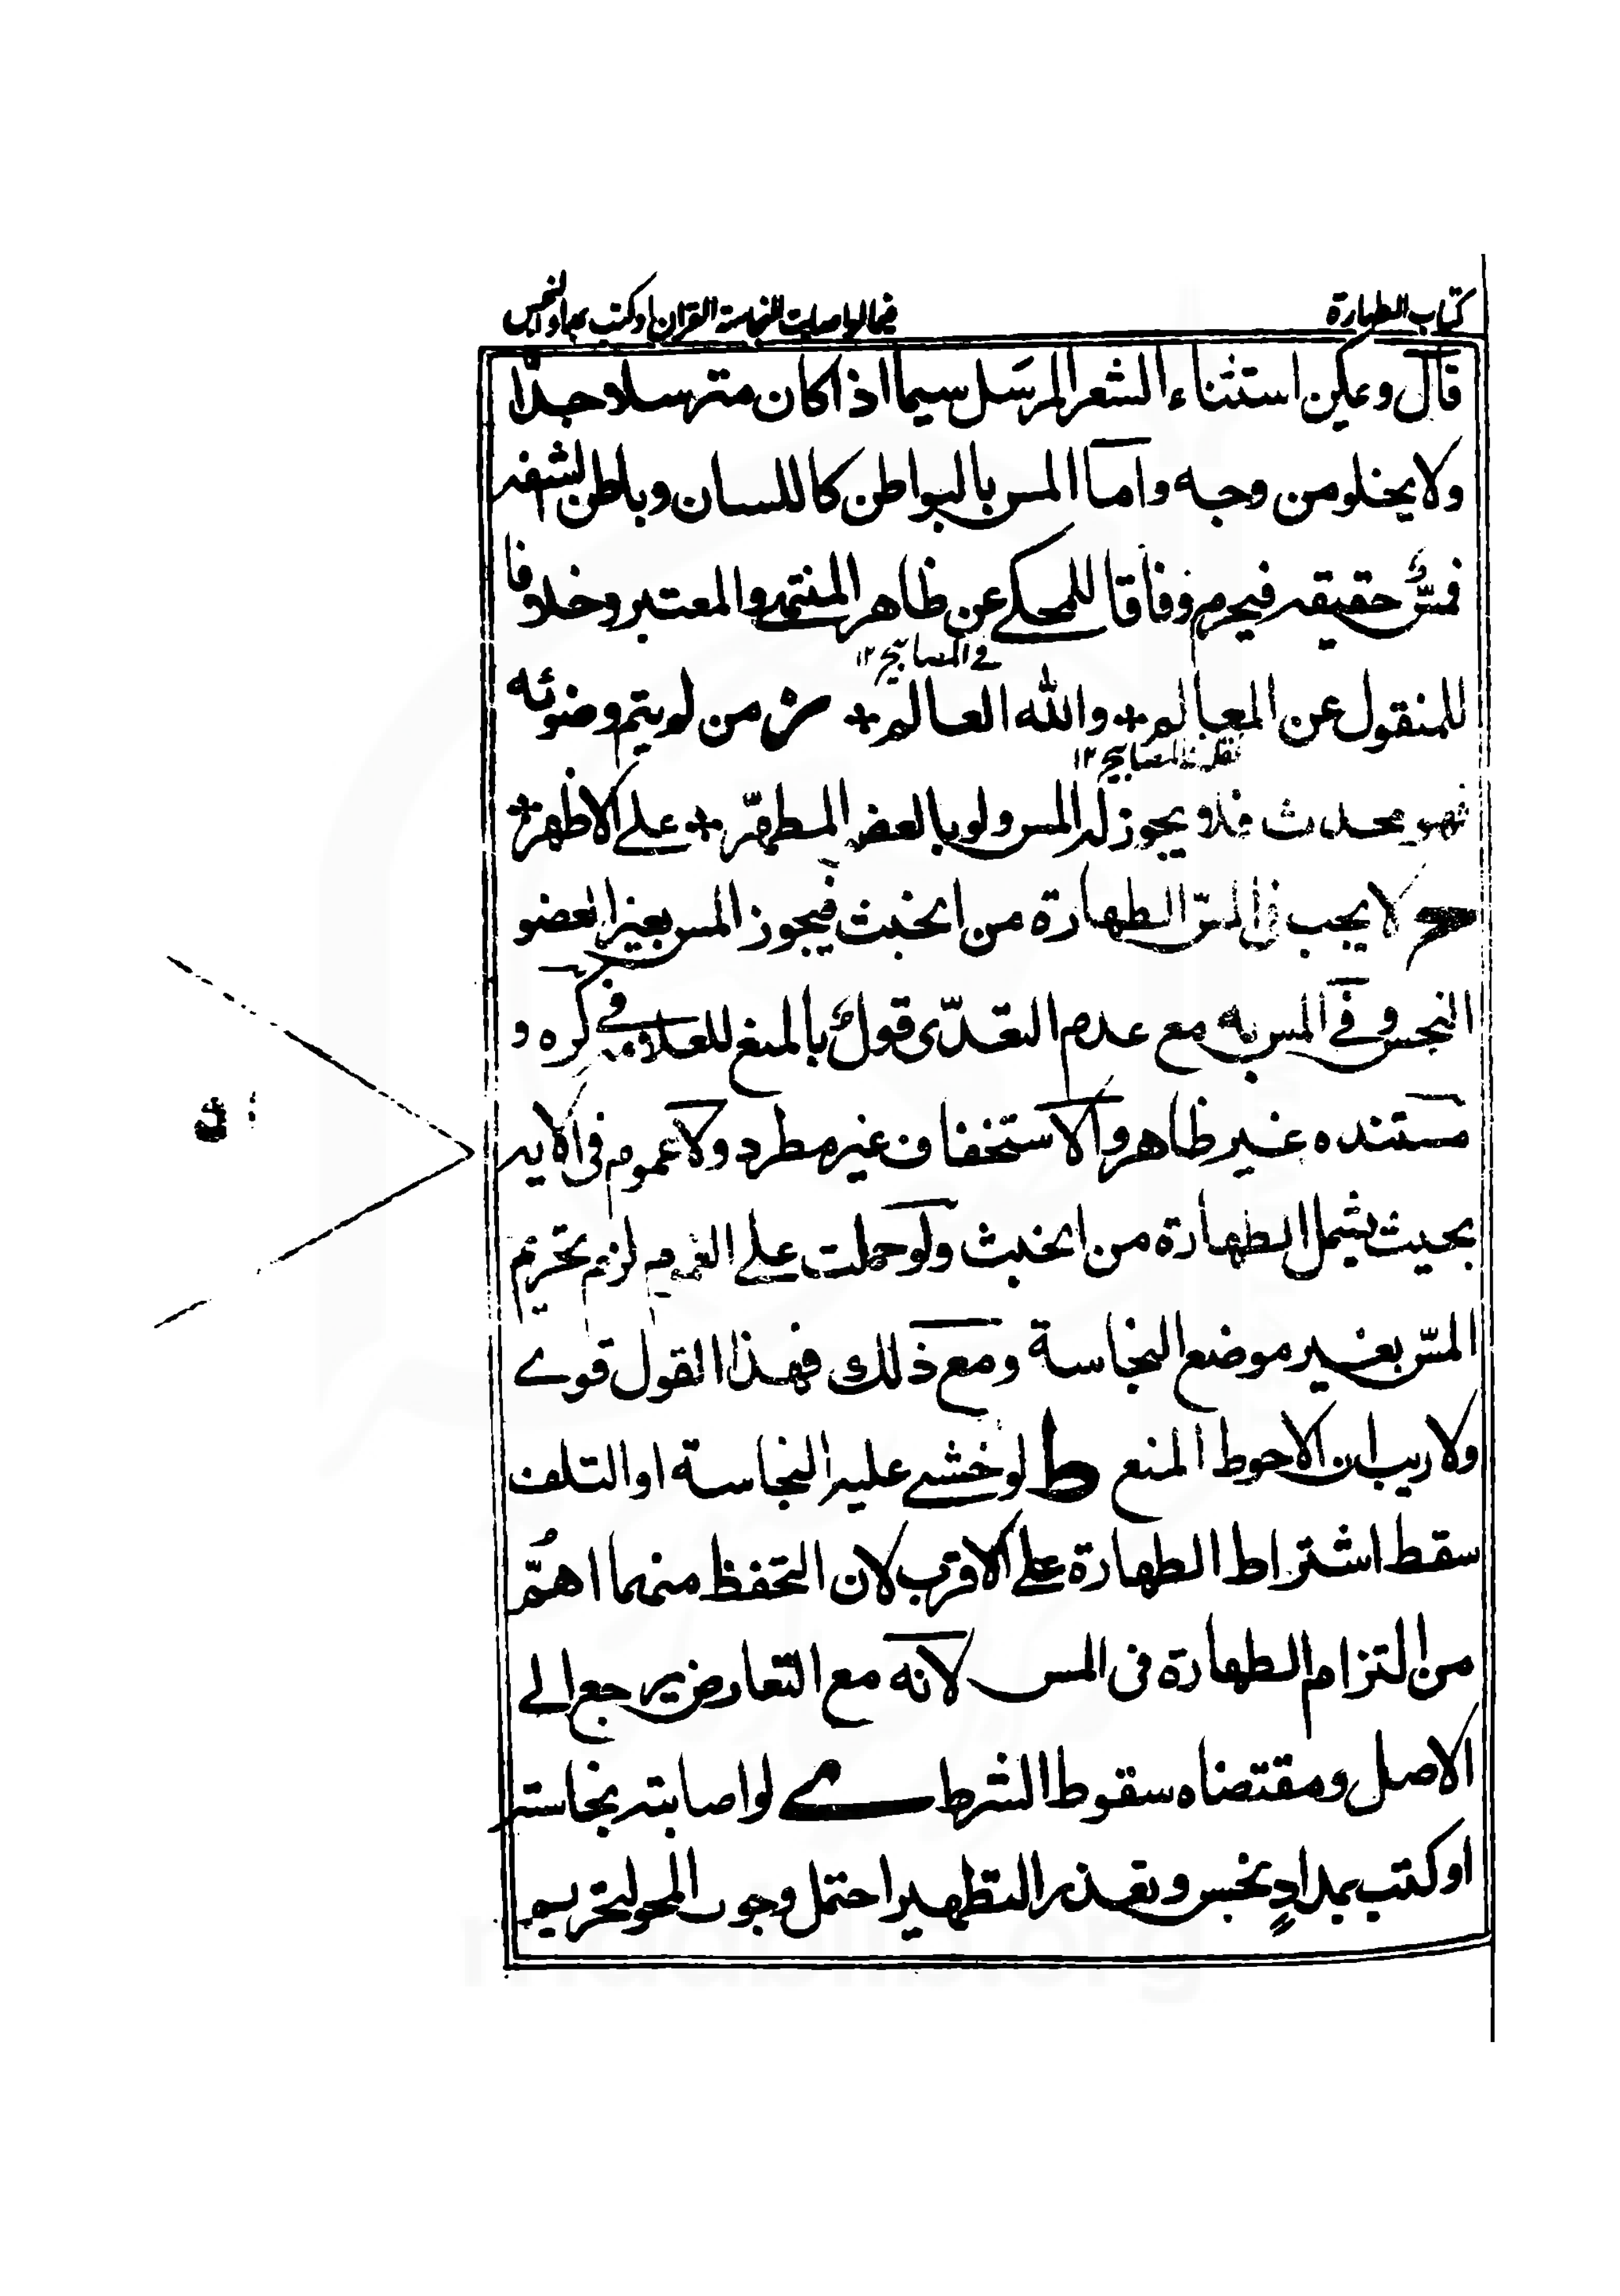 كتاب الطهارة
فيما لو اصابت النجاسة القران او كتب بمداد نجس
قال ويمكن استثناء الشعر المرسَل سيما اذا كان مترسلا جدّا
ولا يخلو من وجه واما المس بالبواطن كاللسان وباطن الشفة
فمسٌّ حقيقة فيحرم وفاقا للمحكي عن ظاهر المنتهى والمعتبر وخلافا
في المصابيح ١٢
للمنقول عن المعالم + والله العالم + ز من لو يتم وضوئه
نقله في المصابيح ١٢
فهو محدث فلا يجوز له المس ولو بالعضو المطهّر + على الاظهر +
ح لا يجب في المسّ الطهارة من الخبث فيجوز المس بغير العضو
النجس وفي المس به مع عدم التعدّى قولٌ بالمنع للعلامة في كره و
مستنده غير ظاهر والاستخفاف غير مطرد ولا عموم في الاية
بحيث يشمل الطهارة من الخبث ولو حملت على العموم لزم تحريم
المسّ بغير موضع النجاسة ومع ذلك فهذا القول قوي
ولا ريب ان الاحوط المنع ط لو خشي عليه النجاسة او التلف
سقط اشتراط الطهارة على الاقرب لان التحفظ منهما اهمّ
من التزام الطهارة في المس لانه مع التعارض يرجع الى
الاصل ومقتضاه سقوط الشرط ي لو اصابته نجاسة
او كتب بمدادٍ نجس وتعذر التطهير احتمل وجوب المحو لتحريم